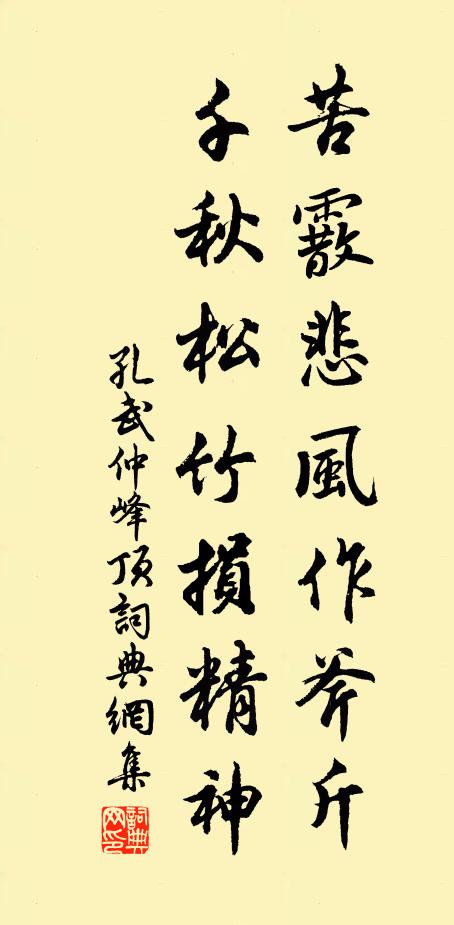 苦霰悲風作斧斤
千秋松竹損精神
孔武仲峰頂詞典網集
詞典
网印